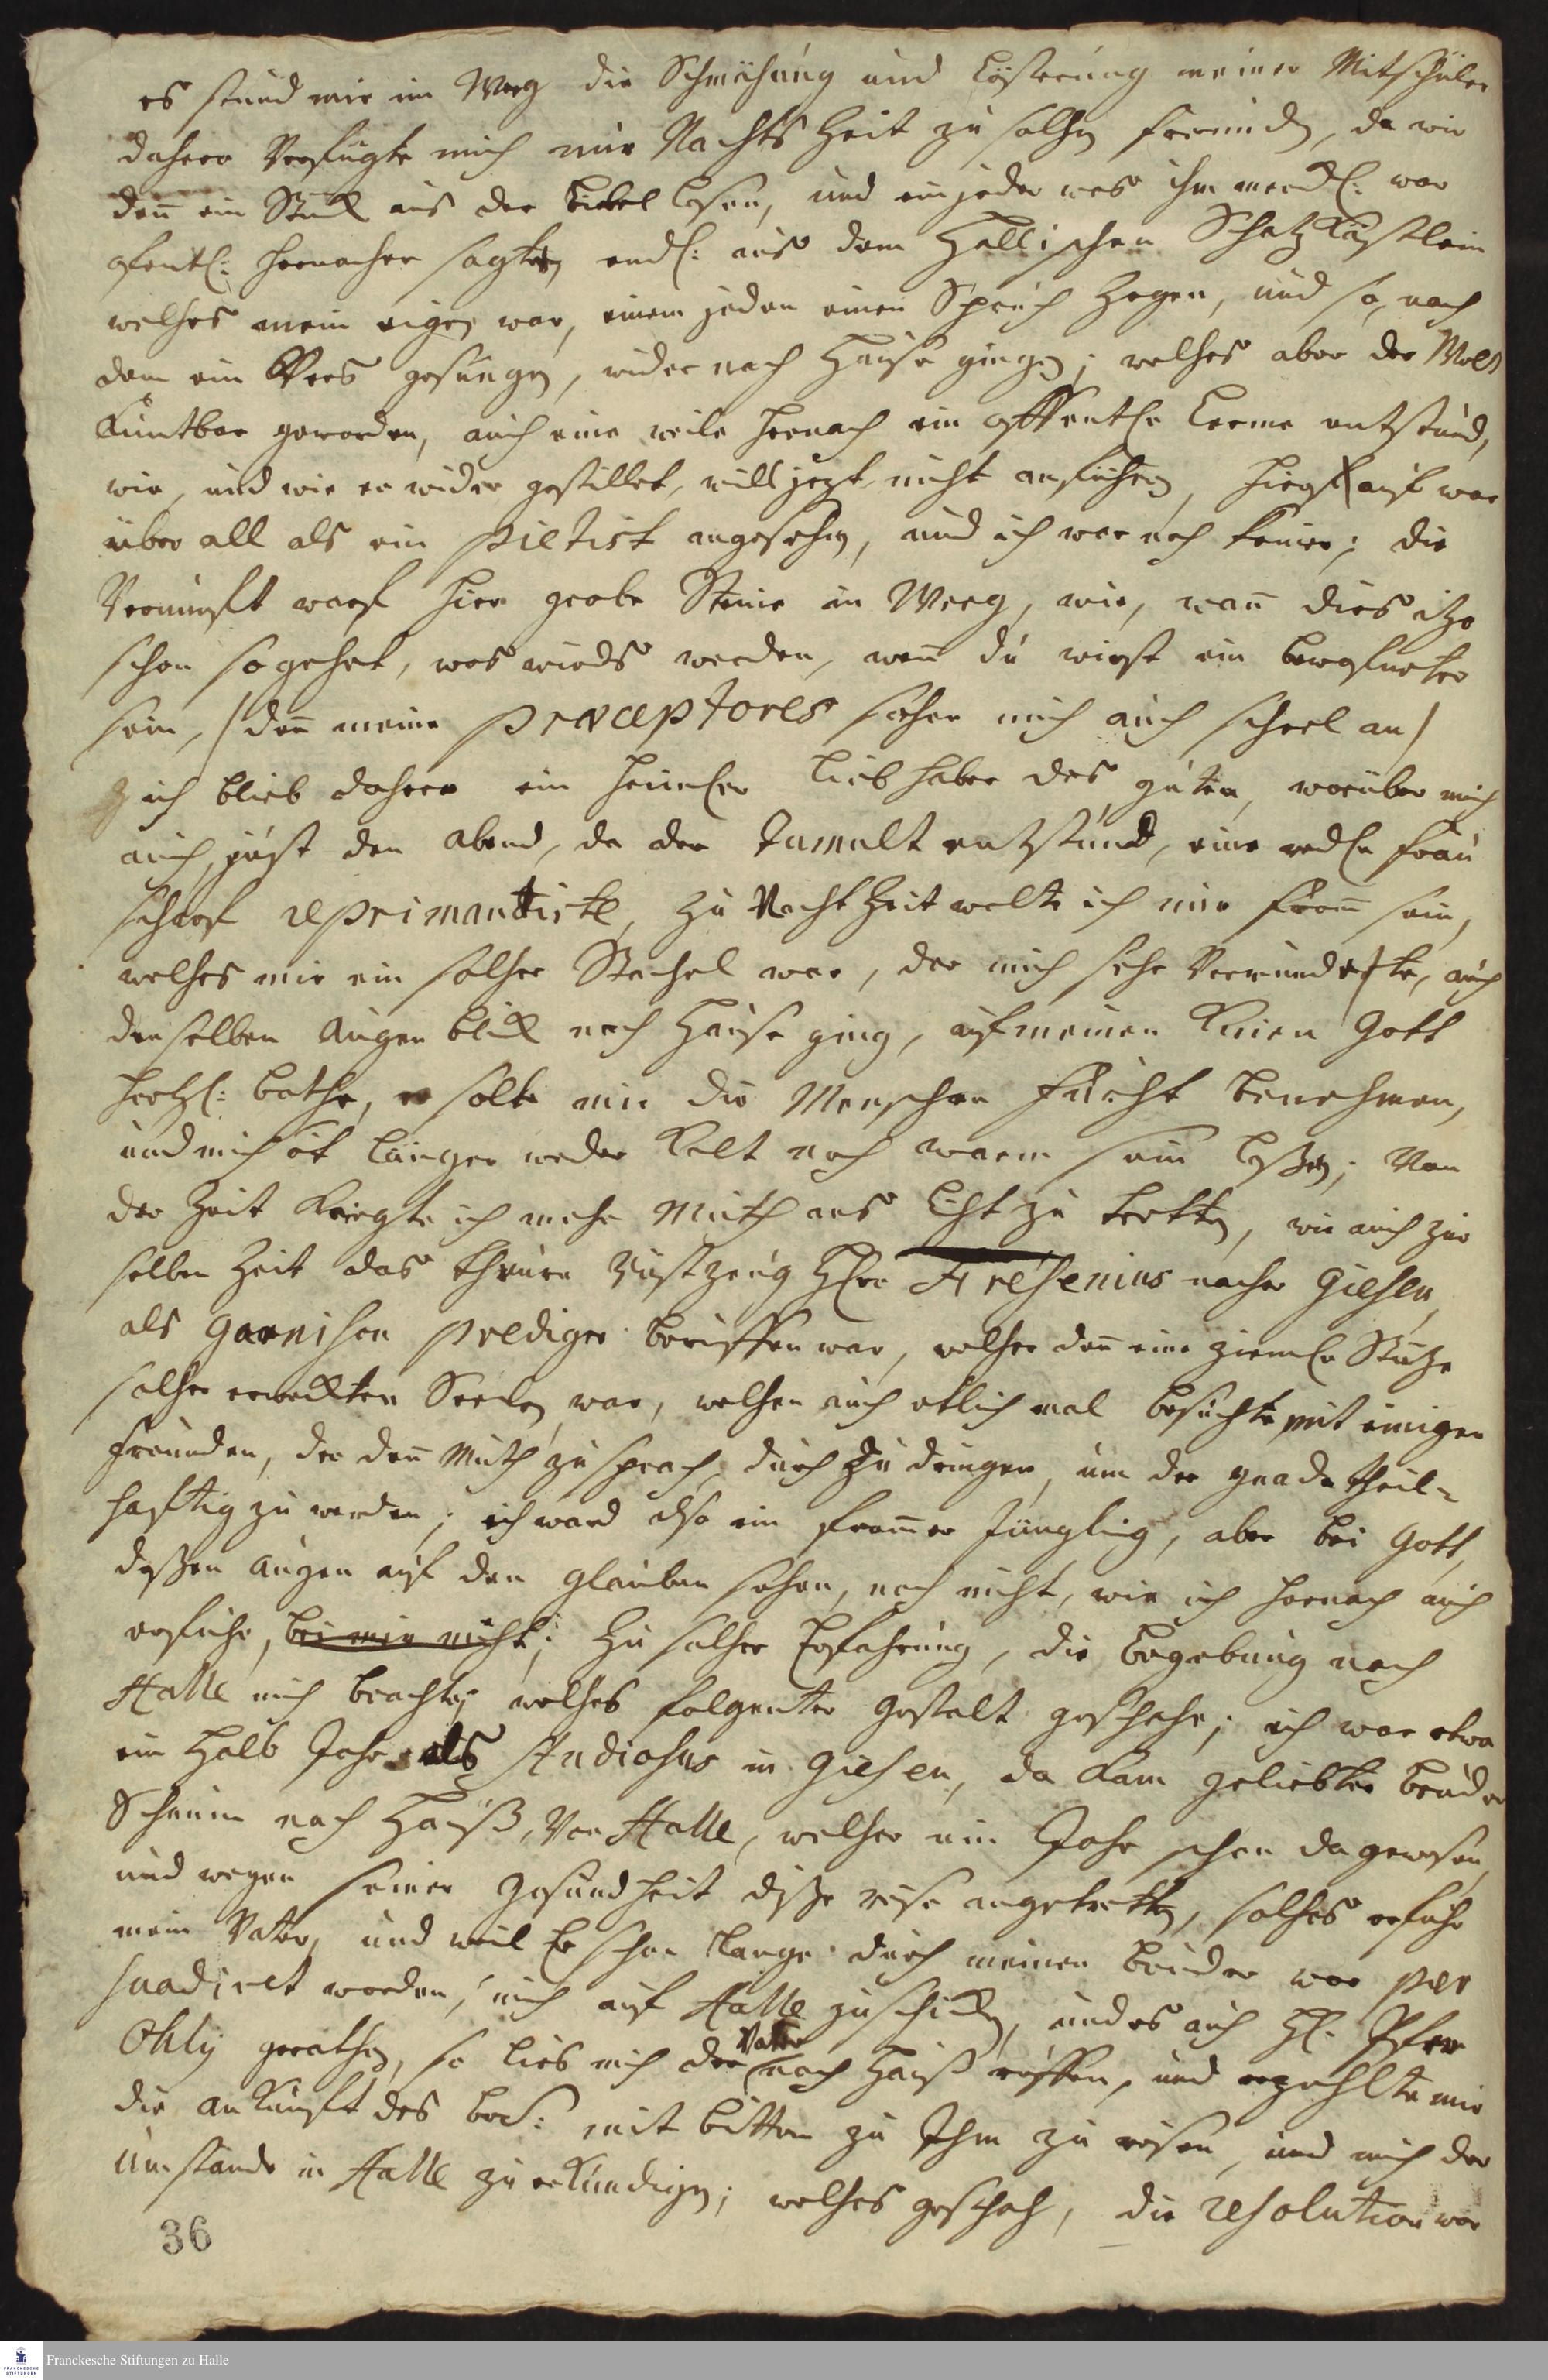 es stund mir im Weeg die Schmähung und Lästerung meiner Mitschüler
dahero verfügte mich nur Nachts Zeit zu solchen freunden, da wir
dan̄ ein Stück aus der Bibel lasen, und ein jeder was ihm merckl: war
ofentl: hernacher sagten, endl: aus dem Hallischen Schatz Kästlein
welches mein eigen war, einem jeden einen Spruch Zogen, und so, nach
dem ein Vers gesungen, wider nach Hause gingen; welches aber der Welt
kuntbar geworden, auch eine weile hernach ein offentl. Lerme entstund,
wie, und wie er wider gestillet, will jezt nicht anführen, hierauf war
über all als ein Pietist angesehen, und ich war noch keiner; die
Vernunft warf hier grobe Steine in Weeg, wie, wan̄ dies itzo
schon sogehet, was wirds werden, wan̄ du wirst ein
sein, /dan̄ meine Præceptores sahen mich auch scheel an/
ich blieb dahero ein heiml.er Liebhaber des guten, worüber mich
auch, just den Abend, da der Tumult entstund, eine redl. frau
scharf reprimantirte, Zu Nacht Zeit wolte ich nur from̄ sein,
welches mir ein solcher Stachel war, der mich sehr verwundete, auch
denselben Augen blick nach Hause ging, auf meinen Knien Gott
hertzl: bathe, er solte mir die Menschen Furcht benehmen,
und mich nit länger weder Kalt noch warm sein laßen; Von
der Zeit kriegte ich mehr Muth ans Licht zu tretten, wie auch zur
selben Zeit das theure Rüstzeug H.er Fresenius nacher Giesen,
als Garnison Prediger beruffen war, welcher dan̄ eine zieml. Stütze
solcher erweckten Seelen war, welchen auch etlich mal besuchte mit einigen
freunden, der dan̄ Muth zu sprach, durch zu dringen, um der gnade theil-
hafftig zu werden; ich ward also ein from̄er Jüngling, aber bei Gott,
deßen Augen auf den glauben sehen, noch nicht, wie ich hernach auch
erfuhr, bei mir nicht; Zu solcher Erfahrung, die Begebung nach
Halle mich brachte; welches folgenter gestalt geschahe; ich war etwa
ein Halb Jahr als Studiosus in Giesen, da kam geliebter Bruder
Schaum nach Hauß, von Halle, welcher ein Jahr schon da gewesen,
und wegen seiner gesundheit diße reise angetretten, solches erfuhr
mein Vater, und weil Er schon lange durch meinen Bruder war per
suadiret worden, mich auf Halle zuschicken, und es auch H. Pfar
Ohly gerathen, so lies mich der Vatter nach Hauß ruffen, und erzehlte mir
die ankunft des Brd: mit bitten zu Ihm zu reisen, und mich der
Umstände in Halle zu erkundigen; welches geschah, die resolution war
36
Franckesche Stiftungen zu Halle